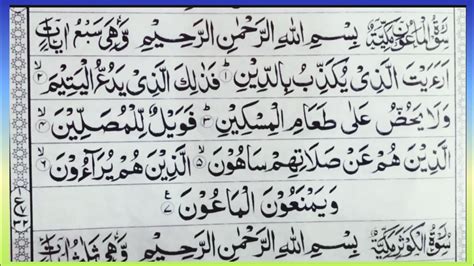 سُوْرَةُ الْمَاعُوْنِ مَكِّيَّةٌ بِسْمِ اللهِ الرَّحْمٰنِ الرَّحِيْمِ وَّهِيَ سَبْعُ اٰيَاتٍ
اَرَءَيْتَ الَّذِىْ يُكَذِّبُ بِالدِّيْنِ ۱ فَذٰلِكَ الَّذِىْ يَدُعُّ الْيَتِيْمَ ۲
وَلَا يَحُضُّ عَلٰى طَعَامِ الْمِسْكِيْنِ ۳ فَوَيْلٌ لِّلْمُصَلِّيْنَ ۴
الَّذِيْنَ هُمْ عَنْ صَلَاتِهِمْ سَاهُوْنَ ۵ الَّذِيْنَ هُمْ يُرَآءُوْنَ ۶
وَيَمْنَعُوْنَ الْمَاعُوْنَ ۷
سُوْرَةُ الْكَوْثَرِ مَكِّيَّةٌ بِسْمِ اللهِ الرَّحْمٰنِ الرَّحِيْمِ وَّهِيَ ثَلَاثُ اٰيَاتٍ